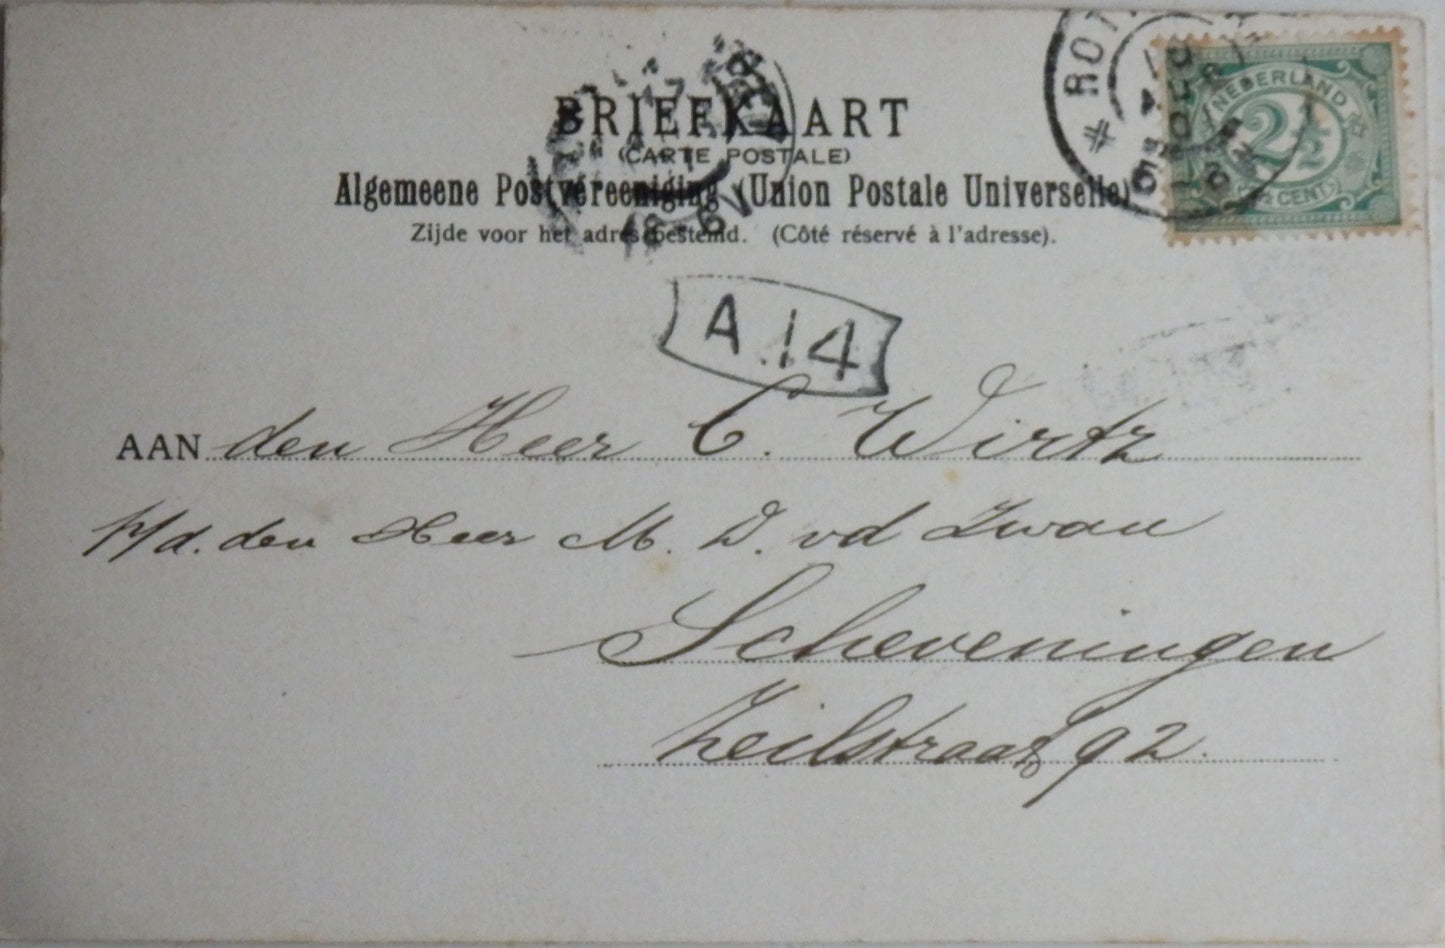 BRIEFKAART
(CARTE POSTALE)
Algemeene Postvereeniging (Union Postale Universelle)
Zijde voor het adres bestemd. (Côté réservé à l'adresse).
NEDERLAND
2½
CENT
A 14
AAN den Heer C. Wirtz
p/d. den Heer M. D. vd Zwan
Scheveningen
Zeilstraat 92.